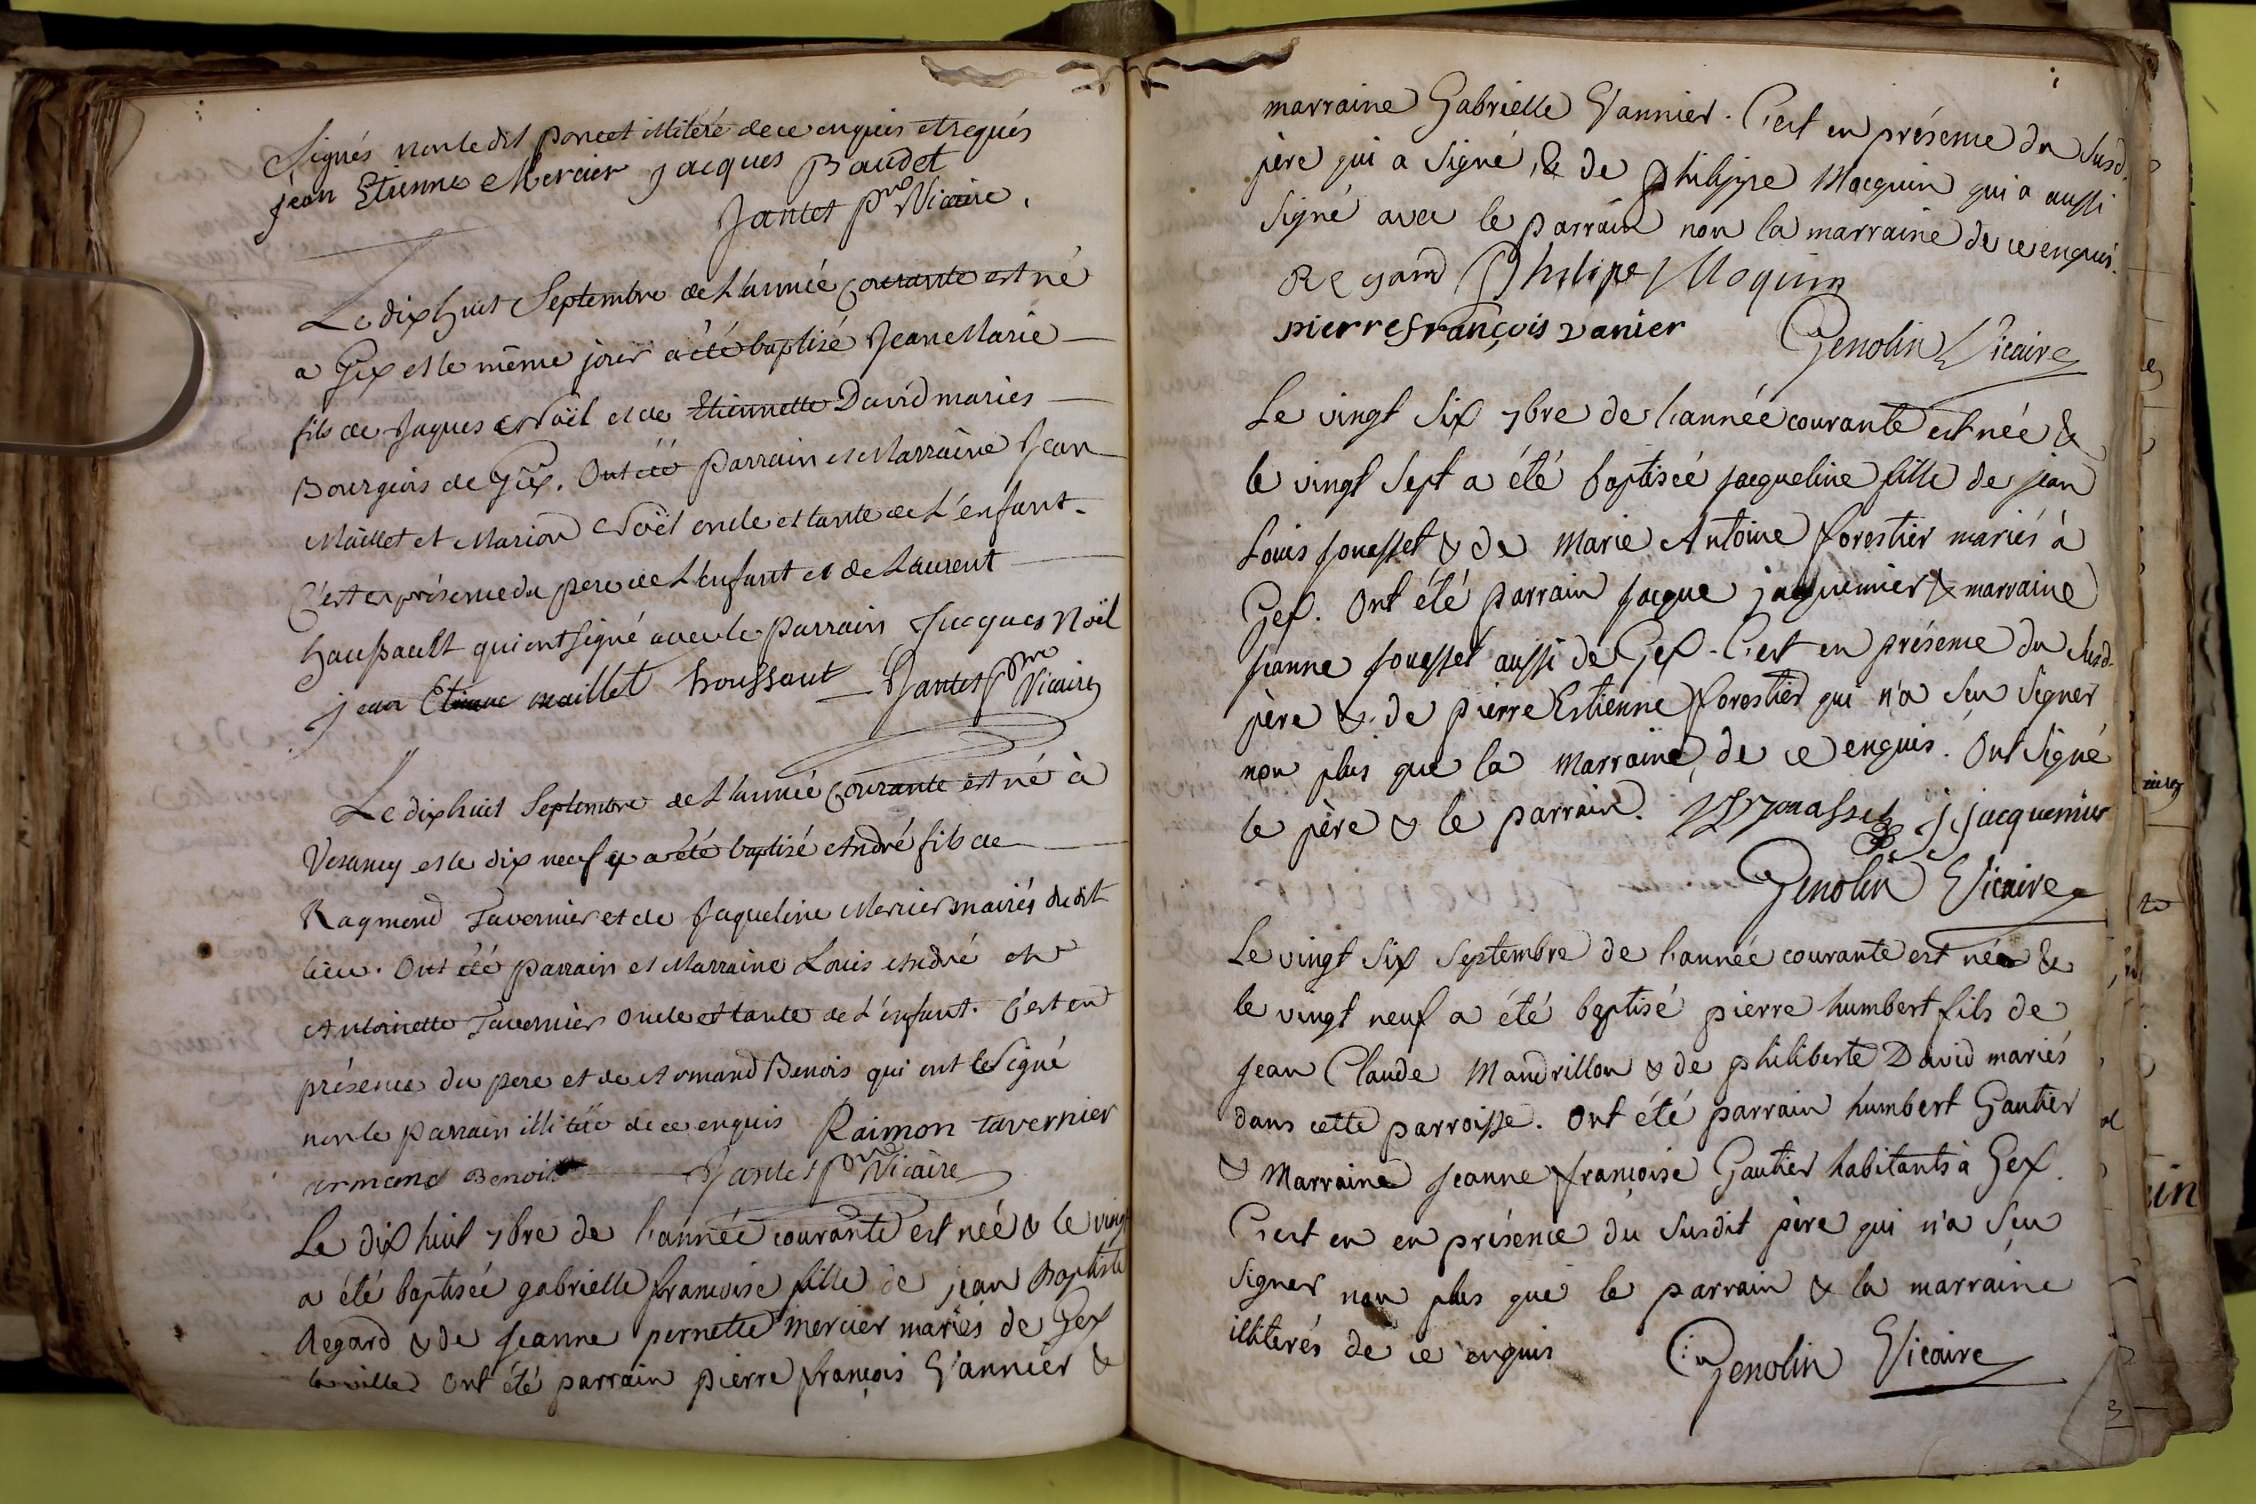 Signés non ledit poncet illiteré de ce enquis et requis
jean Etienne Mercier jacques Baudet
Jantet pre Vicaire.
Le dixhuit Septembre de L'année courante est né
a Gex et le même jour a été baptisé Jean Marie
fils de Jaques Noël et de Etiennette David mariés
Bourgeois de Gex. Ont été parrain et Marraine Jean
Maillet et Marion Noël oncle et tante de L'enfant.
C'est en présence du pere de L'enfant et de Laurent
haussault qui ont signé avec le parrain Jacques Noël
jean Etienne maillet houssaut Jantet pre Vicaire
Le dixhuit Septembre de L'année courante est né à
Vesancy et le dix neuf y a été baptisé André fils de
Raymond Tavernier et de Jaqueline Mercier mariés dudit
lieu. Ont été parrain et Marraine Louis André et
Antoinette Tavernier oncle et tante de L'enfant. C'est en
présence du pere et de Armand Benois qui ont Signé
non le parrain illitéré de ce enquis Raimon tavernier
armand Benoit Jantet pre Vicaire
Le dix huit 7bre de l'année courante est née & le vingt
a été baptisée gabrielle françoise fille de jean Baptiste
Regard & de Jeanne pernette mercier mariés de Gex
la ville. Ont été parrain pierre françois Vannier &
marraine Gabrielle Vannier. C'est en présence du susd.
père qui a signé, & de philippe Maquin qui a aussi
signé avec le parrain non la marraine de ce enquis.
Regard Philipe Moquin
pierre françois vanier Genolin Vicaire
Le vingt six 7bre de l'année courante est née &
le vingt sept a été baptisée jacqueline fille de jean
Louis jouasset & de Marie Antoine forestier mariés à
Gex. Ont été parrain jacque jacquemier & marraine
jeanne jouasset aussi de Gex. C'est en présence du susd.
père & de pierre Estienne forestier qui n'a seu signer
non plus que la marraine, de ce enquis. Ont signé
le père & le parrain. jouasset j jacquemier
Genolin Vicaire
Le vingt six septembre de l'année courante est né &
le vingt neuf a été baptisé pierre humbert fils de
jean Claude Mandrillon & de philiberte David mariés
dans cette parroisse. Ont été parrain humbert Gautier
& Marraine jeanne françoise Gautier habitants à Gex.
C'est en en présence du susdit père qui n'a seu
signer non plus que le parrain & la marraine
illiterés de ce enquis Genolin Vicaire